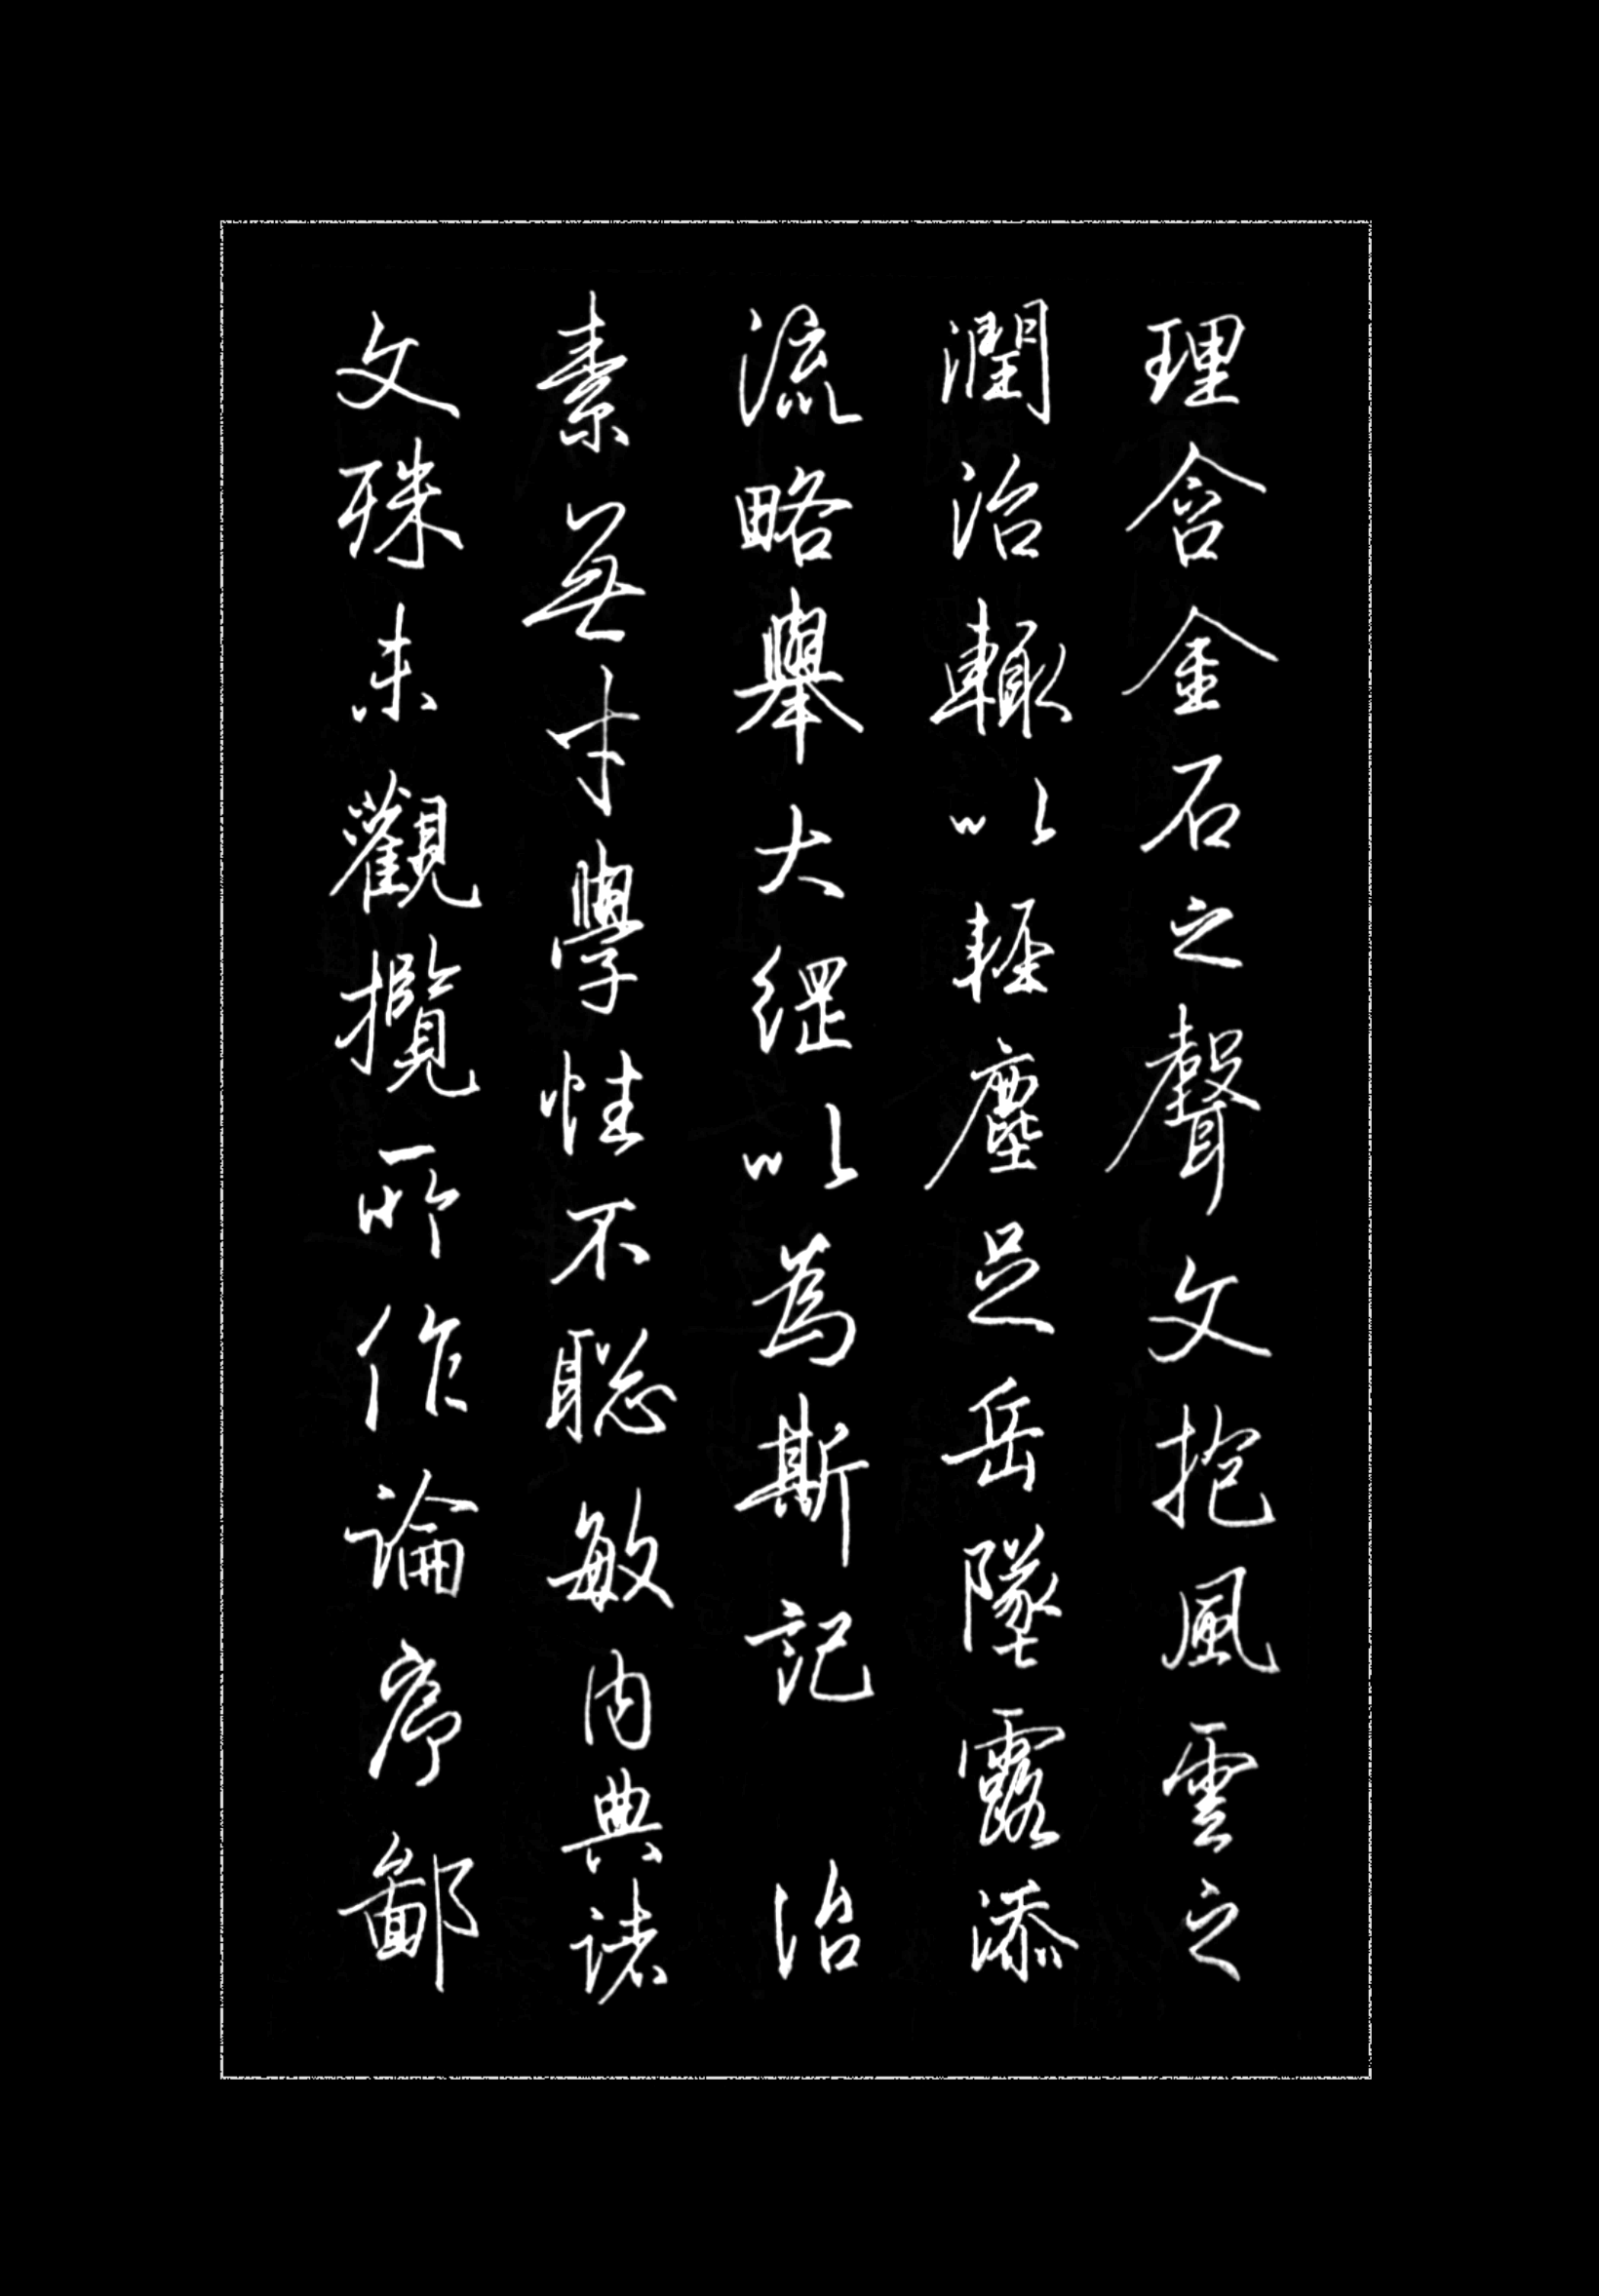 理含金石之聲文抱風雲之
潤治輙以輕塵足岳墜露添
流略舉大綱以為斯記 治
素無才學性不聡敏内典諸
文殊未觀攬所作論序鄙